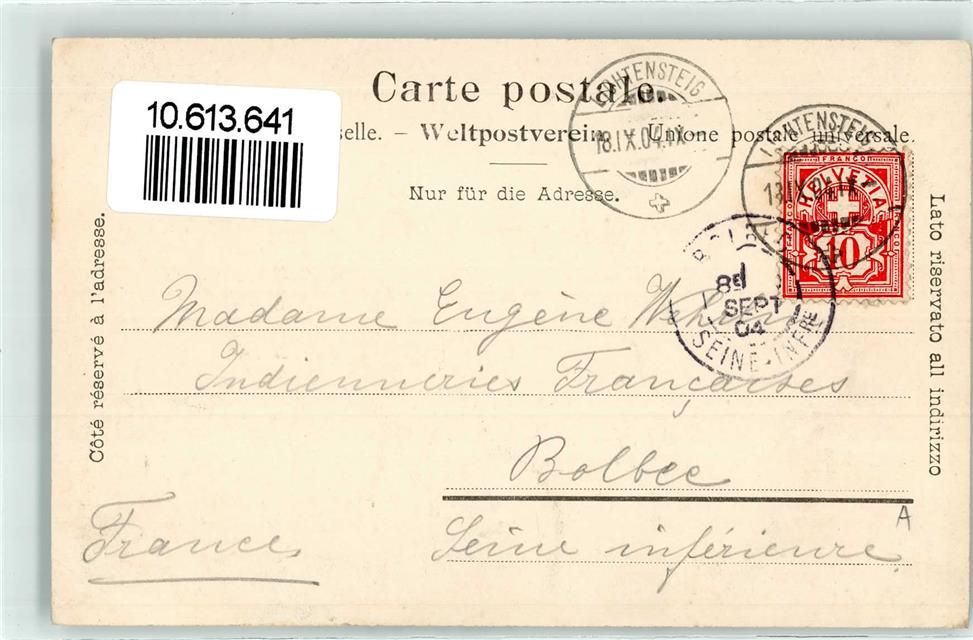 Carte postale.
10.613.641
selle. – Weltpostverein. Unione postale universale.
Nur für die Adresse.
LICHTENSTEIG
18.IX.04.
LICHTENSTEIG
FRANCO
HELVETIA
10
FRANCO
FRANCO
SEPT
04
SEINE-INFRE
Côté réservé à l'adresse.
Lato riservato all indirizzo
Madame Eugène
Indienneries Françaises
Bolbec
A
France
Seine inférieure